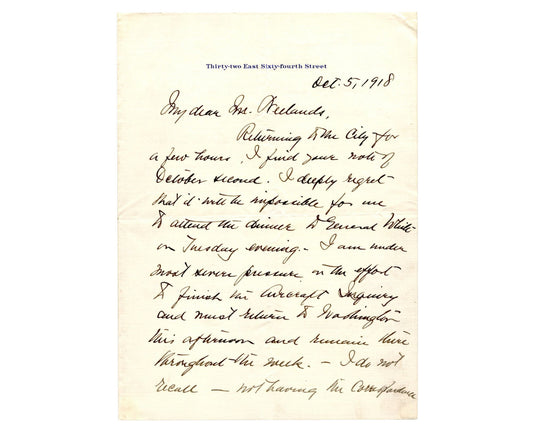 Thirty-two East Sixty-fourth Street
Oct. 5, 1918
My dear Mr. Neelands,
Returning to the City for
a few hours, I find your note of
October second. I deeply regret
that it will be impossible for me
to attend the dinner to General White
on Tuesday evening. - I am under
most severe pressure in the effort
to finish the Aircraft Inquiry
and must return to Washington
this afternoon and remain there
throughout the week. - I do not
recall - not having the correspondence